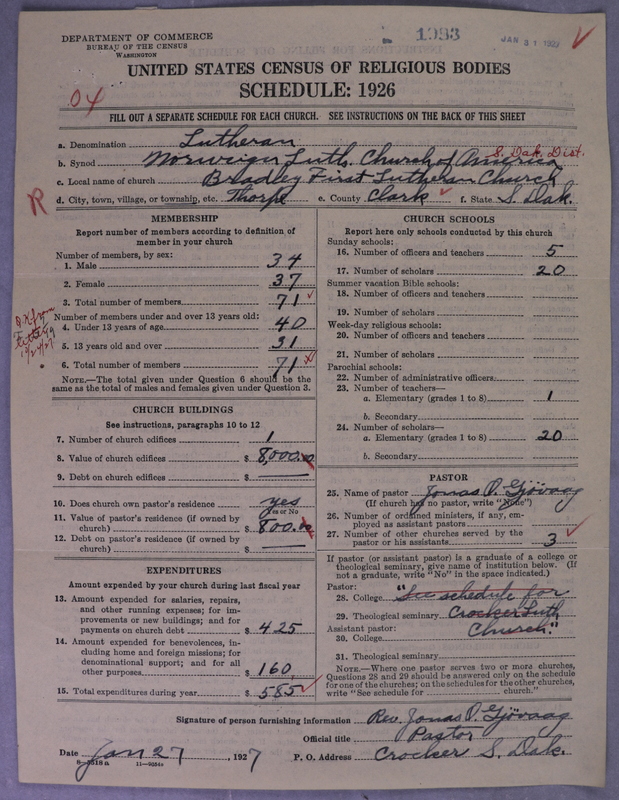 DEPARTMENT OF COMMERCE
BUREAU OF THE CENSUS
WASHINGTON
1933
JAN 31 1927
UNITED STATES CENSUS OF RELIGIOUS BODIES
SCHEDULE: 1926
04
FILL OUT A SEPARATE SCHEDULE FOR EACH CHURCH. SEE INSTRUCTIONS ON THE BACK OF THIS SHEET
a. Denomination Lutheran
b. Synod Norweigan Luth. Church of America S. Dak. Dist.
c. Local name of church Bradley First Lutheran Church
R
d. City, town, village, or township, etc. Thorpe e. County Clark f. State S. Dak.
MEMBERSHIP
Report number of members according to definition of
member in your church
Number of members, by sex:
1. Male 34
2. Female 37
3. Total number of members 71
Number of members under and over 13 years old:
4. Under 13 years of age 40
5. 13 years old and over 31
6. Total number of members 71
NOTE.—The total given under Question 6 should be
same as the total of males and females given under Question 3.
CHURCH BUILDINGS
See instructions, paragraphs 10 to 12
7. Number of church edifices 1
8. Value of church edifices $ 8,000.00
9. Debt on church edifices $ —
10. Does church own pastor's residence yes
Yes or No
11. Value of pastor's residence (if owned by
church) $ 800.00
12. Debt on pastor's residence (if owned by
church) $ —
EXPENDITURES
Amount expended by your church during last fiscal year
13. Amount expended for salaries, repairs,
and other running expenses; for im-
provements or new buildings; and for
payments on church debt $ 425
14. Amount expended for benevolences, in-
cluding home and foreign missions; for
denominational support; and for all
other purposes $ 160
15. Total expenditures during year $ 585
CHURCH SCHOOLS
Report here only schools conducted by this church
Sunday schools:
16. Number of officers and teachers 5
17. Number of scholars 20
Summer vacation Bible schools:
18. Number of officers and teachers
19. Number of scholars
Week-day religious schools:
20. Number of officers and teachers
21. Number of scholars
Parochial schools:
22. Number of administrative officers
23. Number of teachers—
a. Elementary (grades 1 to 8) 1
b. Secondary
24. Number of scholars—
a. Elementary (grades 1 to 8) 20
b. Secondary
PASTOR
25. Name of pastor Jonas O. Gjövaag
(If church has no pastor, write "None")
26. Number of ordained ministers, if any, em-
ployed as assistant pastors
27. Number of other churches served by the
pastor or his assistants 3
If pastor (or assistant pastor) is a graduate of a college or
theological seminary, give name of institution below. (If
not a graduate, write "No" in the space indicated.)
Pastor:
28. College "See schedule for
29. Theological seminary Crocker Luth
Assistant pastor: Church."
30. College
31. Theological seminary
NOTE.—Where one pastor serves two or more churches,
Questions 28 and 29 should be answered only on the schedule
for one of the churches; on the schedules for the other churches,
write "See schedule for church."
Signature of person furnishing information Rev. Jonas O. Gjövaag
Official title Pastor
Date Jan 27, 1927 P. O. Address Crocker S. Dak.
8—5518a 11—9054a